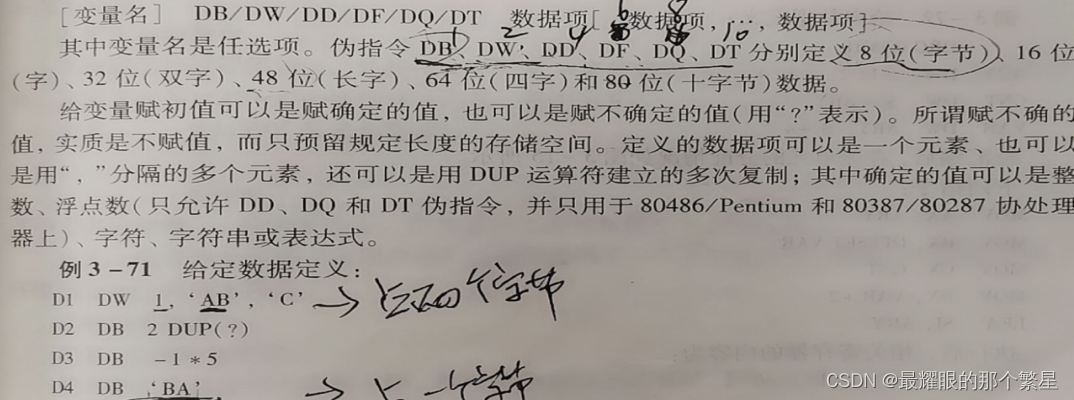 [变量名] DB/DW/DD/DF/DQ/DT 数据项[, 数据项, …, 数据项]
其中变量名是任选项。伪指令 DB、DW、DD、DF、DQ、DT 分别定义 8 位(字节)、16 位
(字)、32 位(双字)、48 位(长字)、64 位(四字)和 80 位(十字节)数据。
给变量赋初值可以是赋确定的值，也可以是赋不确定的值(用“?”表示)。所谓赋不确的
值，实质是不赋值，而只预留规定长度的存储空间。定义的数据项可以是一个元素、也可以
是用“，”分隔的多个元素，还可以是用 DUP 运算符建立的多次复制；其中确定的值可以是整
数、浮点数(只允许 DD、DQ 和 DT 伪指令，并只用于 80486/Pentium 和 80387/80287 协处理
器上)、字符、字符串或表达式。
例 3-71 给定数据定义：
D1 DW 1, ‘AB’, ‘C’ → 占 个字节
D2 DB 2 DUP(?)
D3 DB -1 * 5
D4 DB ‘BA’ → 占一个字节
CSDN @最耀眼的那个繁星